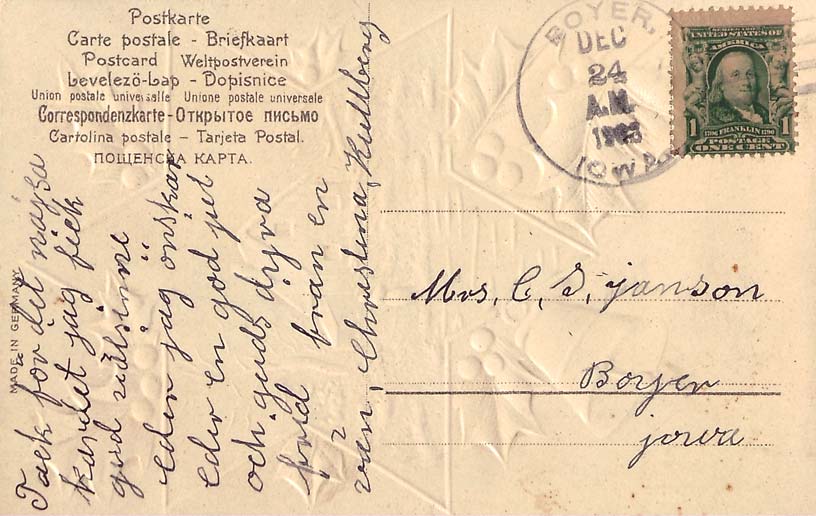 Postkarte
Carte postale - Briefkaart
Postcard Weltpostverein
Levelező-Lap - Dopisnice
Union postale universalle Unione postale universale
Correspondenzkarte-Открытое письмо
Cartolina postale - Tarjeta Postal.
ПОЩЕНСКА КАРТА.
MADE IN GERMANY
Tack for det
kardet jag fick
gud
eder jag önskar
eder en god jul
och guds dyra
frid
van, Christina Kullberg
BOYER,
DEC
24
A.M.
IOWA
SERIES 1902
UNITED STATES OF
AMERICA
1 1
FRANKLIN
POSTAGE
ONE CENT
Mrs, C, S, janson
Boyer
jowa